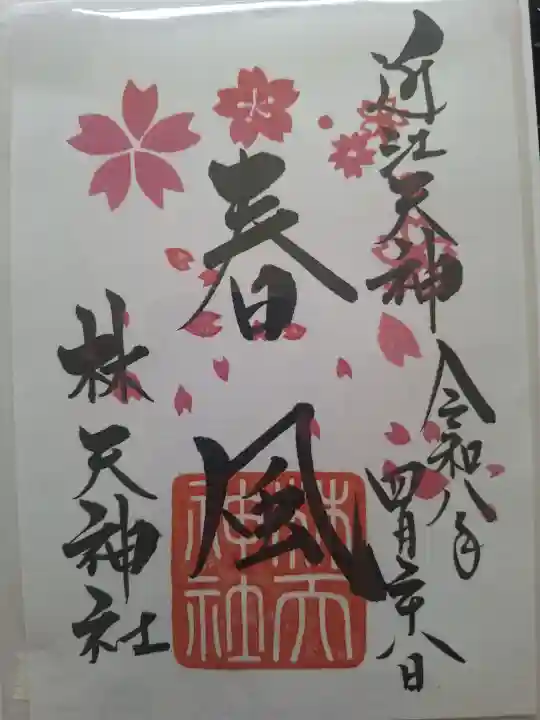 近江天神
令和八年
四月二十八日
春風
林天神社
林天
神社